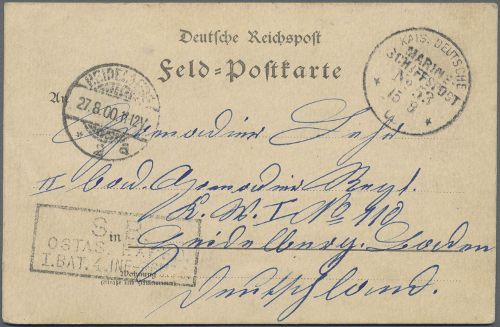 Deutsche Reichspost
Feld=Postkarte
KAIS. DEUTSCHE
MARINE
SCHIFFSPOST
No 33
15 8
HEIDELBERG
27.8.00.11-12V
An
Grenadier
II bad. Grenadier Regt.
K. W. I No 110
Heidelberg. Baden
Deutschland.
S B
OSTAS. EXP.
I. BAT. 4. INF.
in
Wohnung
(Straße und Hausnummer)